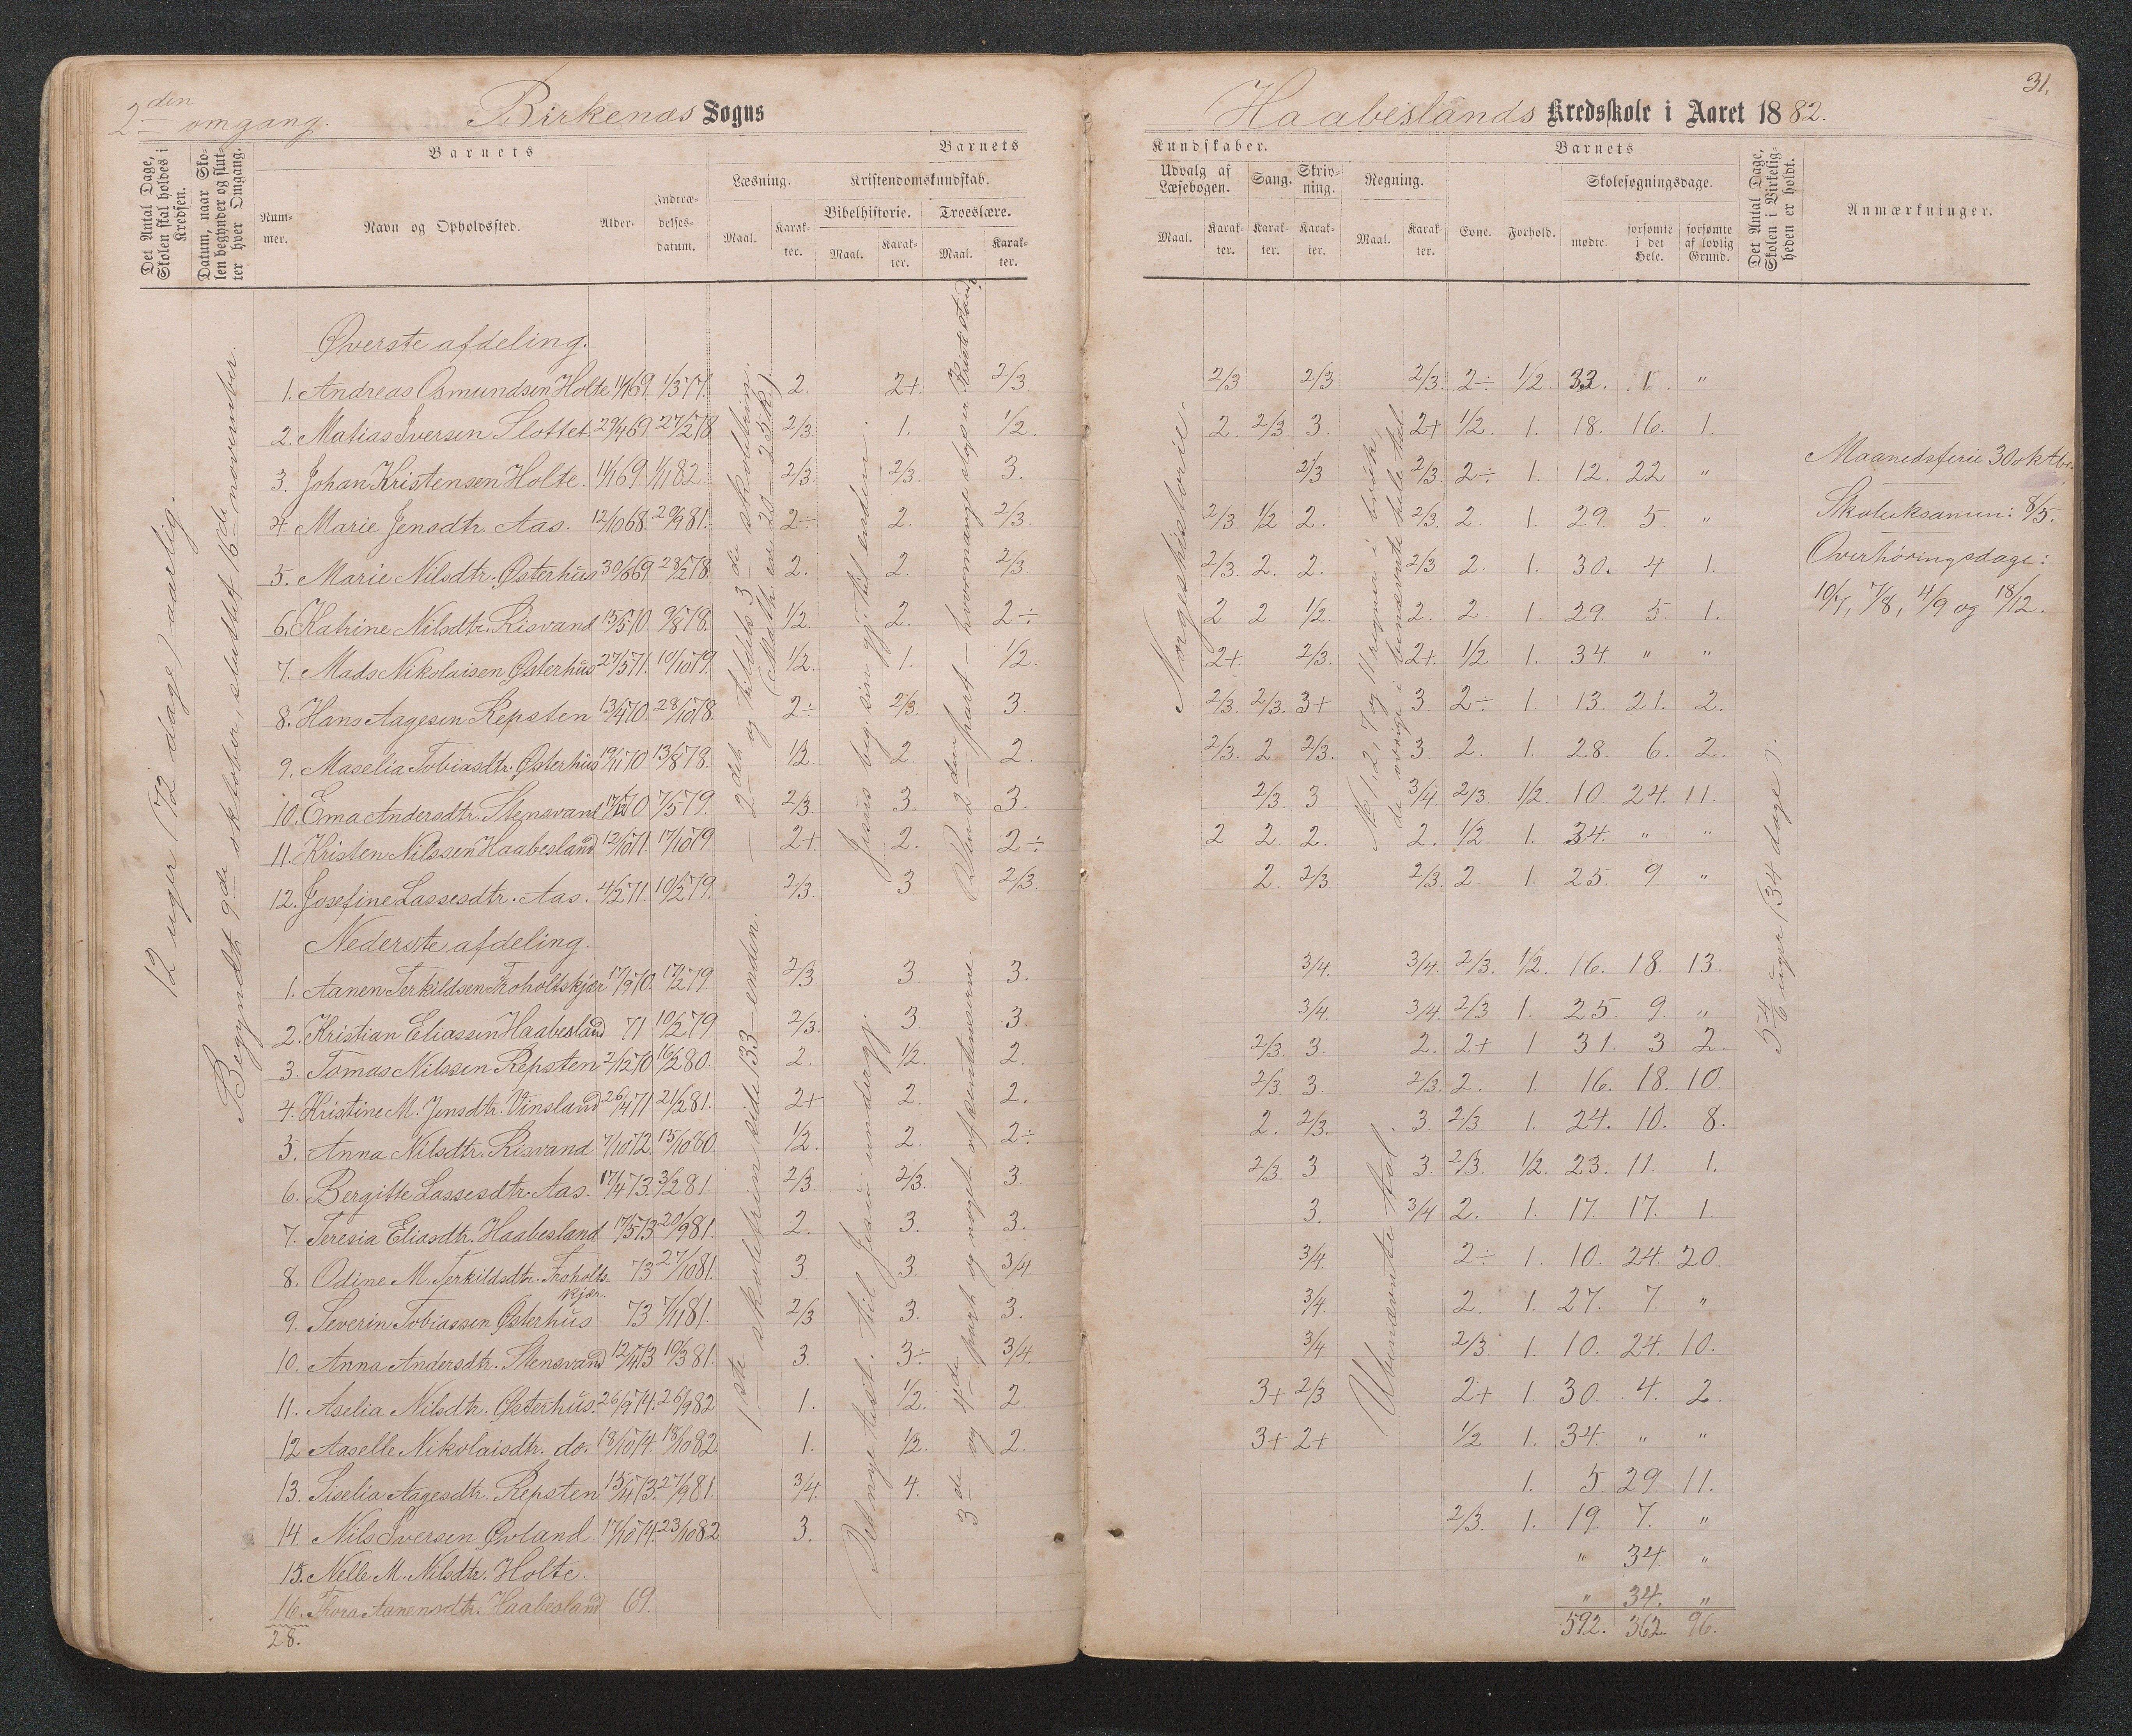 2den omgang.
Birkenæs Sogns
Haabeslands Kredsskole i Aaret 1882.
31.
Det Antal Dage, Skolen skal holdes i Kredsen.
Datum, naar Skolen begynder og slutter hver Omgang.
Barnets
Nummer.
Navn og Opholdssted.
Alder.
Indtrædelsesdatum.
Barnets
Læsning.
Maal.
Karakter.
Kristendomskundskab.
Bibelhistorie.
Maal.
Karakter.
Troeslære.
Maal.
Karakter.
Kundskaber.
Udvalg af Læsebogen.
Maal.
Karakter.
Sang.
Karakter.
Skrivning.
Karakter.
Regning.
Maal.
Karakter.
Barnets
Evne.
Forhold.
Skolesøgningsdage.
mødte.
forsømte i det Hele.
forsømte af lovlig Grund.
Det Antal Dage, Skolen i Virkeligheden er holdt.
Anmærkninger.
12 uger (72 dage) aarlig.
Begyndt 9de oktober, sluttet 16de november.
Øverste afdeling.
1. Andreas Osmundsen Holte 11/1 69. 1/3 77. 2. 2+ 2/3 2/3 2/3 2/3. 2÷ 1/2 33. 1. "
2. Matias Iversen Slottet. 29/4 69 27/2 78 2/3. 1. 1/2. 2. 2/3 3. 2+ 1/2. 1. 18. 16. 1.
3. Johan Kristensen Holte. 11/1 69. 1/1 82. 2/3. 2/3. 3. 2/3 2/3. 2÷ 1. 12. 22 "
4. Marie Jensdtr. Aas. 12/10 68. 29/9 81. 2÷ 2. 2/3. 2/3. 1/2 2. 2/3. 2. 1. 29. 5. "
5. Marie Nilsdtr. Østerhus 30/6 69 28/2 78. 2. 2. 2/3. 2/3. 2. 2. 2/3 2. 1. 30. 4 1.
6. Katrine Nilsdtr. Risvand 13/5 70. 9/8 78. 1/2. 2. 2÷ 2 2 1/2. 2. 2. 1. 29. 5. 1.
7. Mads Nikolaisen Østerhus 27/5 71. 10/10 79. 1/2. 1. 1/2. 2+. 2/3. 2+. 1/2 1. 34 " "
8. Hans Aagesen Repsten 13/4 70. 28/10 78. 2÷ 2/3. 3. 2/3. 2/3. 3+ 3. 2÷ 1. 13. 21. 2.
9. Maselia Tobiasdtr. Østerhus 19/11 70 13/8 78. 1/2. 2. 2. 2/3. 2 2/3. 3. 2. 1. 28. 6. 2.
10. Ema Andersdtr. Stensvand 70 7/5 79. 2/3. 3. 3. 2/3. 3 3/4 2/3. 1/2. 10. 24. 11.
11. Kristen Nilssen Haabesland 12/10 71. 17/10 79 2+ 2. 2÷ 2 2. 2. 2. 1/2 1. 34. " "
12. Josefine Lassesdtr. Aas. 4/2 71. 10/2 79. 2/3. 3 2/3. 2. 2/3. 2/3. 2 1. 25. 9. "
Nederste afdeling.
1. Aanen Terkildsen Froholtskjær 17/9 70. 17/2 79. 2/3 3. 3. 3/4. 3/4. 2/3. 1/2. 16. 18. 13.
2. Kristian Eliassen Haabesland 71 10/2 79 2/3. 3 3. 3/4. 3/4. 2/3 1. 25. 9. "
3. Tomas Nilssen Repsten 2/12 70 16/2 80 2. 1/2. 2. 2/3. 3. 2. 2+ 1 31. 3 2.
4. Kristine M. Jensdtr. Vinsland 26/4 71 21/2 81. 2+ 2. 2. 2/3. 3. 2/3. 2. 1. 16. 18. 10.
5. Anna Nilsdtr. Risvand 7/10 72. 15/10 80. 1/2. 2. 2÷ 2. 2/3. 3. 2/3 1. 24. 10. 8.
6. Bergitte Lassesdtr. Aas. 17/4 73. 3/2 81 2/3 2/3. 3. 2/3. 3 3. 2/3. 1/2. 23. 11. 1.
7. Teresia Eliasdtr. Haabesland 17/5 73 20/9 81. 2. 3. 3. 3. 3/4 2. 1. 17. 17. 1.
8. Odine M. Terkildsdtr. Froholtskjær. 73 27/10 81. 3. 3. 3/4 3/4. 2÷ 1. 10. 24. 20.
9. Severin Tobiassen Østerhus 73 7/11 81. 2/3 3. 3. 3/4. 2. 1. 27. 7. "
10. Anna Andersdtr. Stensvand 12/4 73 10/3 81. 3. 3÷ 3/4. 3/4 2/3. 1. 10. 24. 10.
11. Aselia Nilsdtr. Østerhus. 26/9 74. 26/9 82 1. 1/2. 2. 3+ 2/3 2+ 1. 30. 4. 2.
12 Aaselle Nikolaisdtr. do. 18/10 74. 18/10 82. 1. 1/2. 2. 3+ 2+ 1/2 1. 34. " "
13. Siselia Aagesdtr. Repsten 15/4 73. 27/9 81. 3/4. 4. 1. 5. 29. 11.
14. Nils Iversen Øvland. 17/10 74. 23/10 82 3. 2/3. 1. 19. 7. "
15. Nelle M. Nilsdtr. Holte. " 34. "
16. Thora Aanensdtr. Haabesland 69. " 34. "
28.
592. 362. 96.
2det og tildels 3de skoletrin.
1ste skoletrin side 133 – enden.
Jesus beg. sin gj. til enden.
Det nye test. til Jesu undergj.
2den part –
3de og 4de part og noget af sentenserne.
Norgeshistorie.
No 1, 2, 7 og 11 regner i brøk,
de øvrige i benævnte hele tal.
Ubenævnte tal
5 4/6 uger (34 dage).
Maanedsferie 30 oktbr.
Skoleeksamen: 8/5.
Overhöringsdage:
7/8, 4/9 og 18/12.